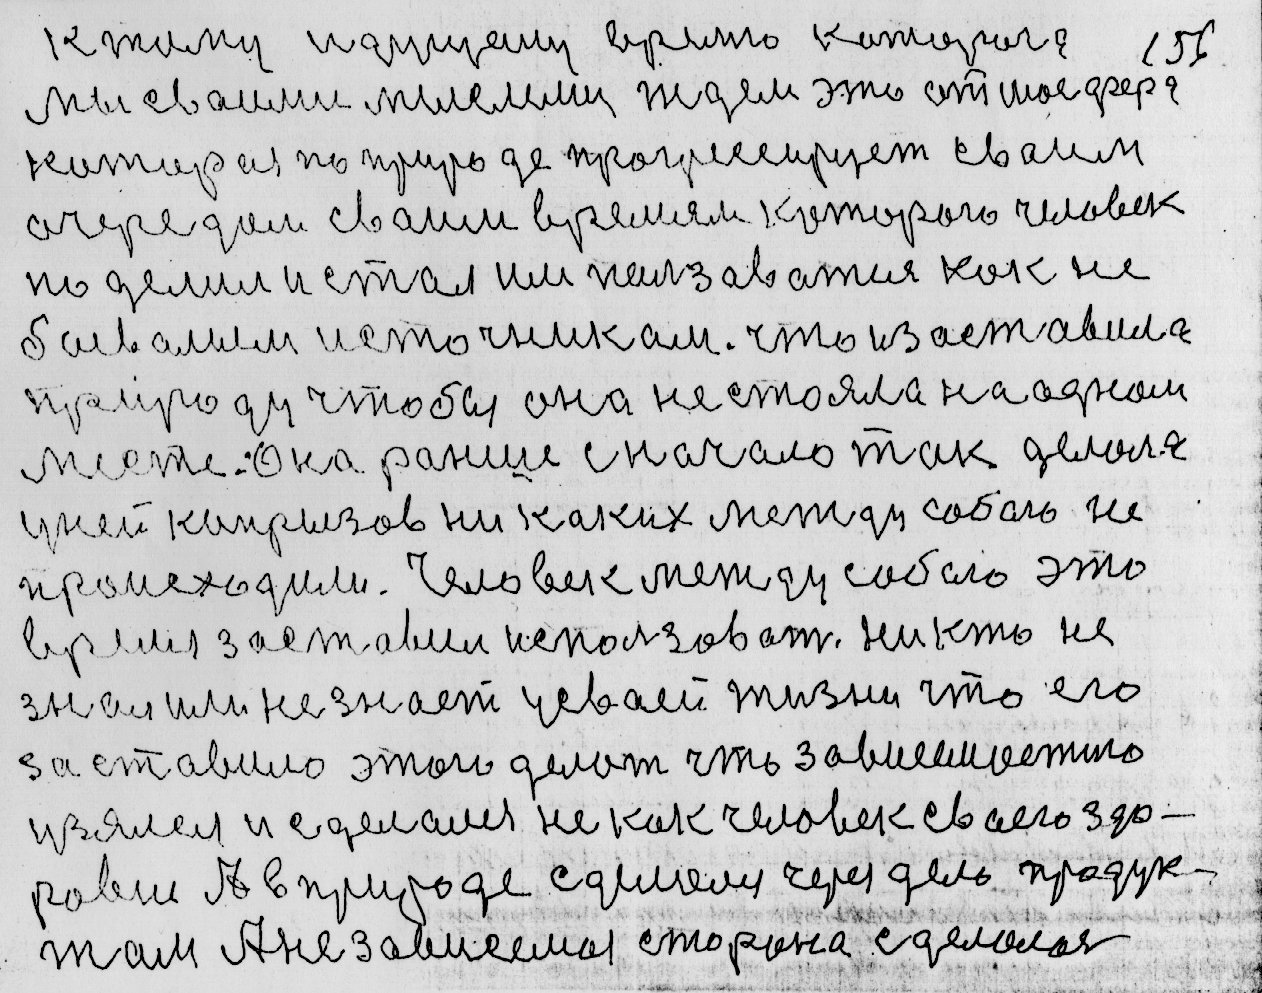 к таму идущему время каторога 156
мы сваими мыслеми ждем это отмосфера
каторая по природе прогрессирует сваим
очередом сваим времям которого человек
поделил и стал им ползаватся как не
бывалым источникам. что и заставила
природу чтобы она не стояла на одном
месте. Она ранще сначало так делола
у ней капризов ни каких между собою не
происходили. Человек между собою это
время заставил использоват. никто не
знал или не знает у сваей жизни что его
заставило этого делат что зависимостю
взялся и сделался не как человек сваего здо-
ровии А в природе сделолся через дело продук-
там А независемоя сторона сделолоя